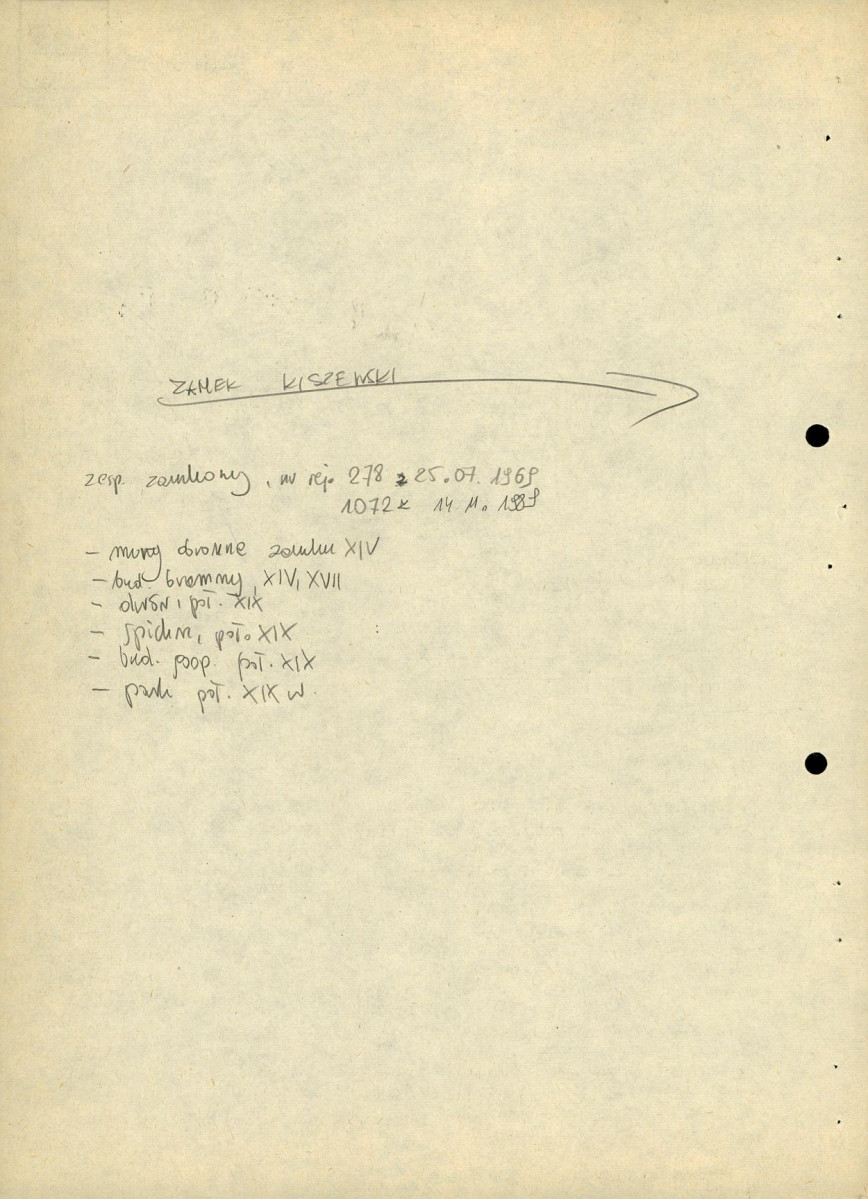 ZAMEK KISZEWSKI
zesp. zamkowy, nr rej. 278 z 25.07.1969
1072 z 14.11.1987
– mury obronne zamku XIV
– bud. bramny, XIV, XVII
– dwór, poł. XIX
– spichrz, poł. XIX
– bud. gosp. poł. XIX
– park poł. XIX w.